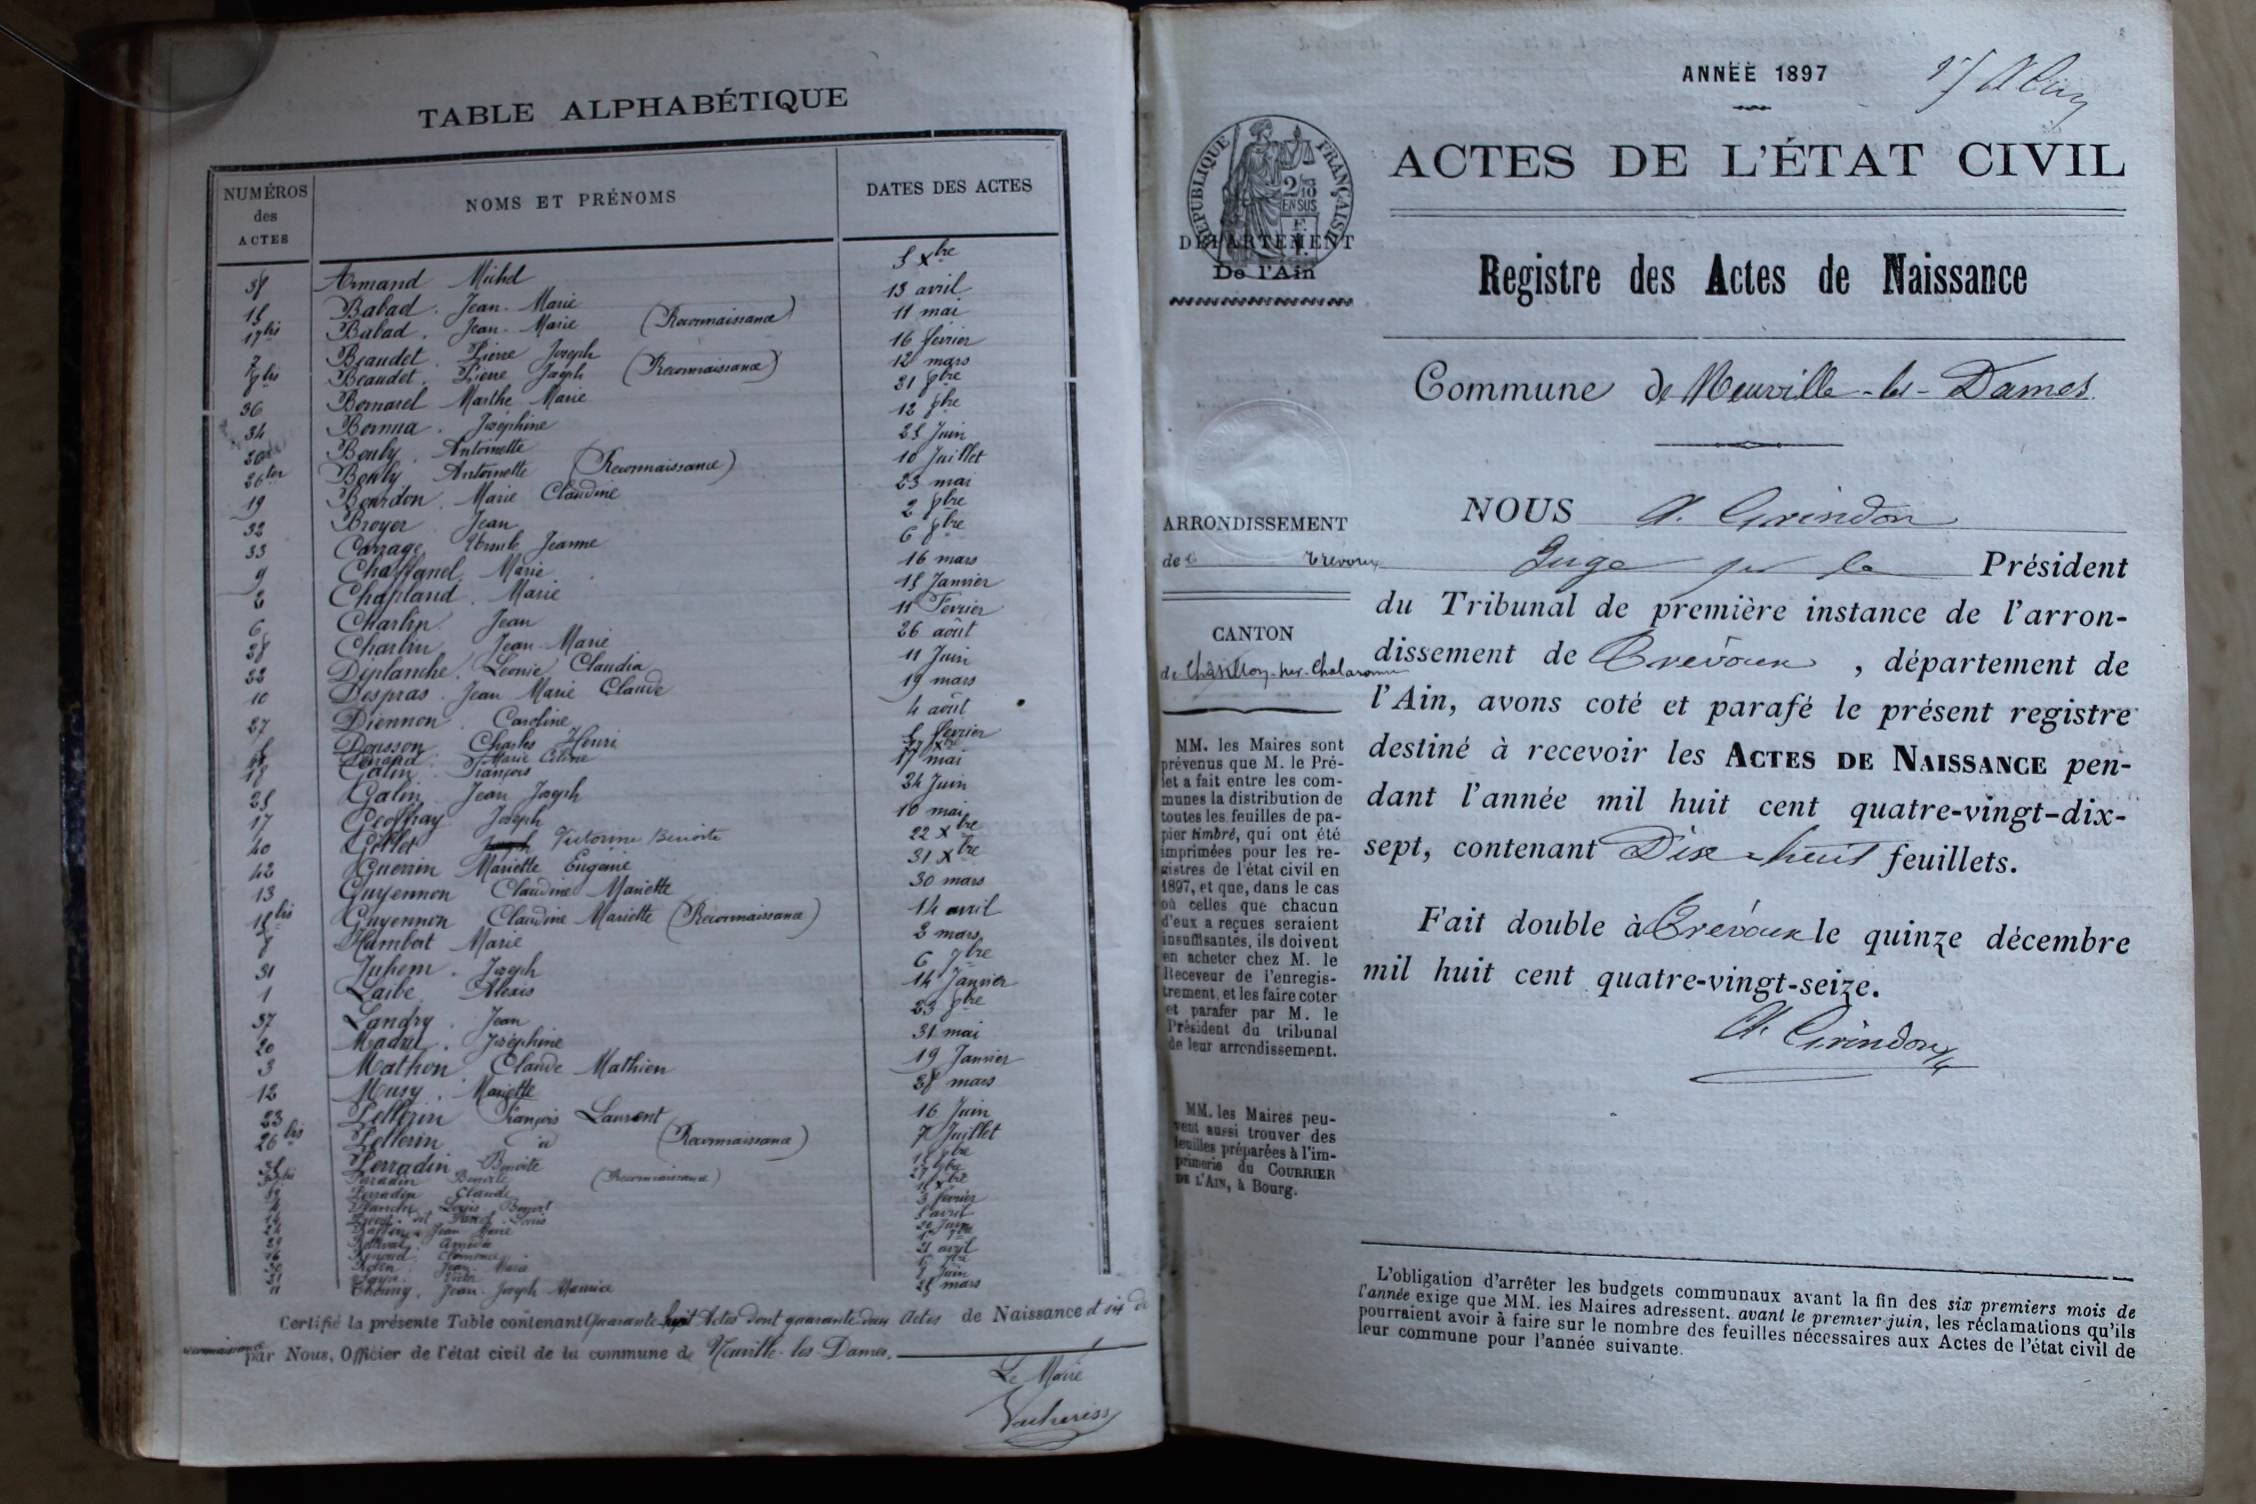 TABLE ALPHABÉTIQUE
NUMÉROS des ACTES NOMS ET PRÉNOMS DATES DES ACTES
38 Armand Michel 5 Xbre
15 Babad. Jean-Marie 13 avril
17 bis Babad. Jean-Marie (Reconnaissance) 11 mai
7 Beaudet. Pierre Joseph 16 février
8 bis Beaudet. Pierre Joseph (Reconnaissance) 12 mars
36 Bornarel Marthe Marie 21 8bre
34 Bernua. Joséphine 12 8bre
Bouby. Antoinette 25 Juin
26 ter Bouby Antoinette (Reconnaissance) 10 Juillet
19 Bourdon. Marie Claudine 23 mai
32 Broyer Jean 2 8bre
33 Carrage Jeanne 6 8bre
9 Chaffanel. Marie 16 mars
2 Chapland. Marie 15 Janvier
6 Charlin Jean 11 Février
28 Charlin Jean-Marie 26 août
22 Déplanche. Léonie Claudia 11 Juin
10 Despras. Jean Marie Claude 19 mars
27 Diennon. Caroline 4 août
Dousson Charles Henri 5 février
Marie Céline
18 Galin François 17 mai
25 Galin Jean Joseph 24 Juin
17 Geoffray Joseph 10 mai
40 Gillet Victorine Benoite 22 Xbre
42 Guerrin Mariette Eugénie 31 Xbre
13 Guyennon Claudine Mariette 30 mars
15 bis Guyennon Claudine Mariette (Reconnaissance) 14 avril
8 Humbert Marie 2 mars
31 Juhem. Joseph 6 7bre
1 Laibe Alexis 14 Janvier
37 Landry. Jean 23 8bre
20 Madrel. Joséphine 31 mai
3 Mathon Claude Mathieu 19 Janvier
12 Musy. Mariette 28 mars
23 Pellerin François Laurent 16 Juin
26 bis Pellerin id (Reconnaissance) 7 Juillet
Perradin Benoite
Perradin Benoite (Reconnaissance)
Perradin Claude
Planche Louis Benoit 3 février
5 avril
Jean Marie
21 avril
Jean Marie
11 Thoung. Jean-Joseph Maurice 25 mars
Certifié la présente Table contenant Quarante-huit Actes dont quarante deux Actes de Naissance et six de
reconnaissance par Nous, Officier de l'état civil de la commune de Neuville-les-Dames.
Le Maire
ANNÉE 1897
ACTES DE L'ÉTAT CIVIL
RÉPUBLIQUE FRANÇAISE
2/10 EN SUS
DÉPARTEMENT
De l'Ain
Registre des Actes de Naissance
Commune de Neuville-les-Dames
ARRONDISSEMENT
de Trévoux
CANTON
de Châtillon-sur-Chalaronne
MM. les Maires sont
prévenus que M. le Pré-
fet a fait entre les com-
munes la distribution de
toutes les feuilles de pa-
pier timbré, qui ont été
imprimées pour les re-
gistres de l'état civil en
1897, et que, dans le cas
où celles que chacun
d'eux a reçues seraient
insuffisantes, ils doivent
en acheter chez M. le
Receveur de l'enregis-
trement, et les faire coter
et parafer par M. le
Président du tribunal
de leur arrondissement.
MM. les Maires peu-
vent aussi trouver des
feuilles préparées à l'im-
primerie du COURRIER
DE L'AIN, à Bourg.
NOUS A. Girindon
Juge pr le Président
du Tribunal de première instance de l'arron-
dissement de Trévoux, département de
l'Ain, avons coté et parafé le présent registre
destiné à recevoir les ACTES DE NAISSANCE pen-
dant l'année mil huit cent quatre-vingt-dix-
sept, contenant Dix-huit feuillets.
Fait double à Trévoux le quinze décembre
mil huit cent quatre-vingt-seize.
A. Girindon
L'obligation d'arrêter les budgets communaux avant la fin des six premiers mois de
l'année exige que MM. les Maires adressent, avant le premier juin, les réclamations qu'ils
pourraient avoir à faire sur le nombre des feuilles nécessaires aux Actes de l'état civil de
leur commune pour l'année suivante.